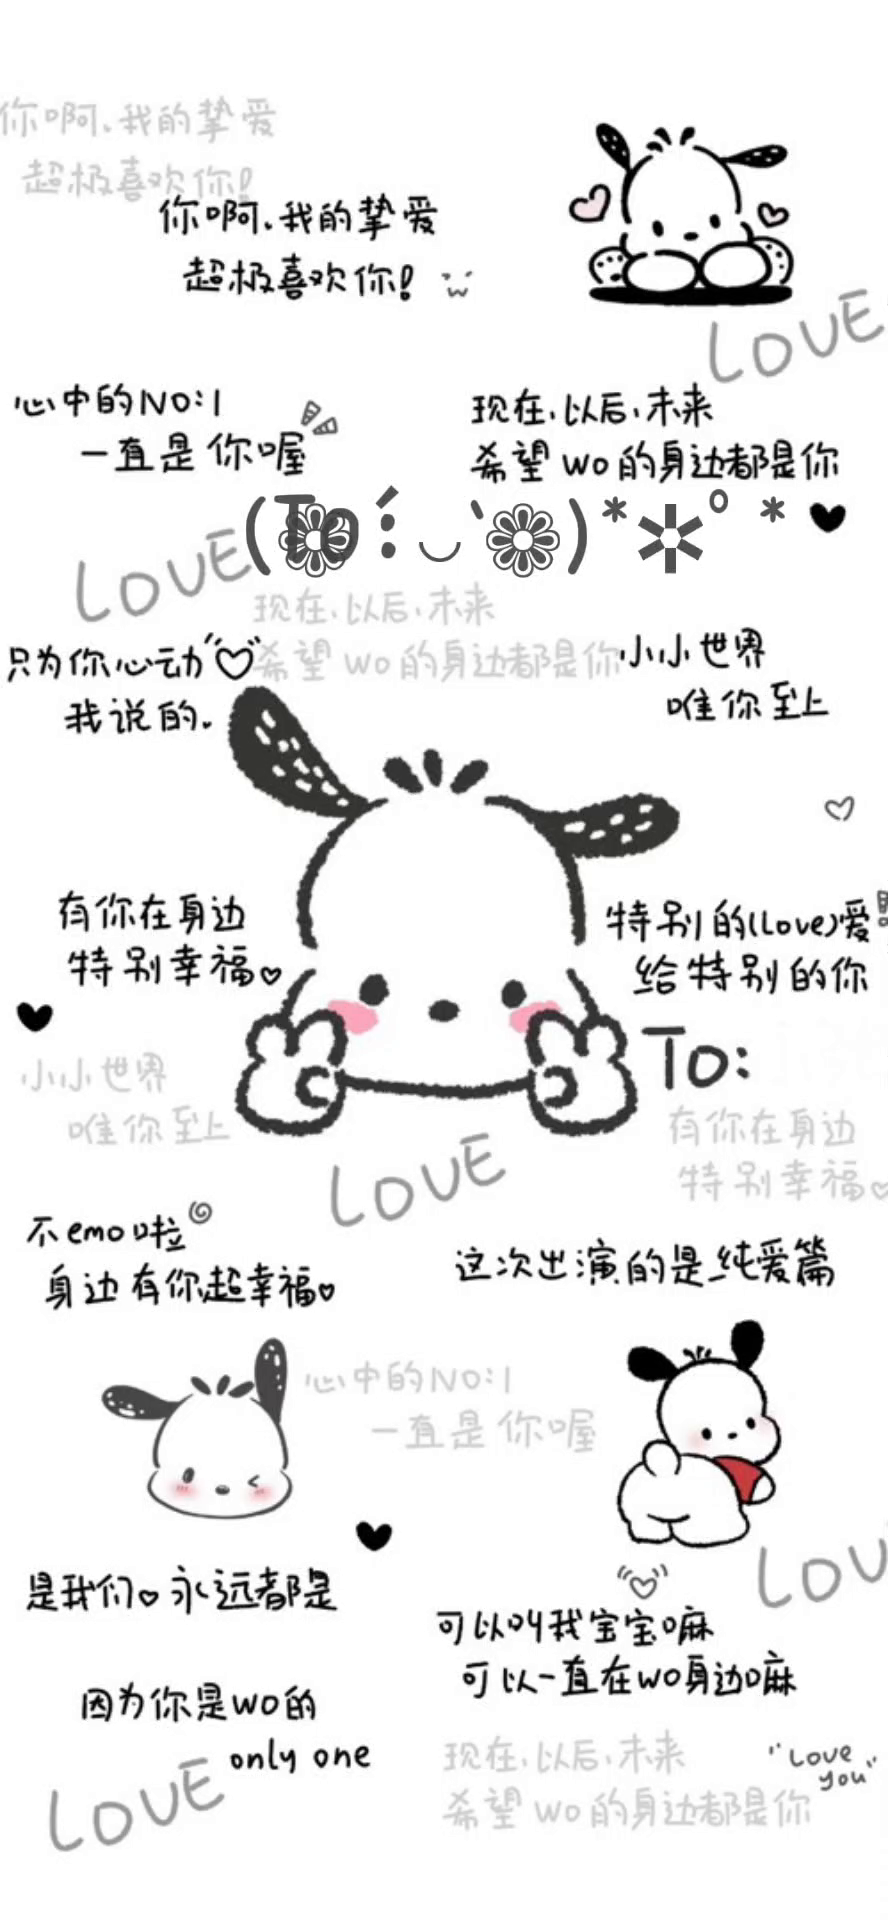 你啊、我的挚爱
超极喜欢你!
你啊、我的挚爱
超极喜欢你!
LOVE
心中的NO:1
一直是你喔
现在、以后、未来
希望wo的身边都是你
(To ́: ◡ ̀❁)*✲゚*
LOVE
现在、以后、未来
希望wo的身边都是你
只为你心动
我说的.
小小世界
唯你至上
有你在身边
特别幸福
特别的(love)爱
给特别的你
To:
小小世界
唯你至上
有你在身边
特别幸福
LOVE
不emo啦
身边有你超幸福
这次出演的是纯爱篇
心中的NO:1
一直是你喔
是我们 永远都是
LOV
可以叫我宝宝嘛
可以一直在wo身边嘛
因为你是wo的
only one
LOVE
现在、以后、未来
希望wo的身边都是你
"Love
you"